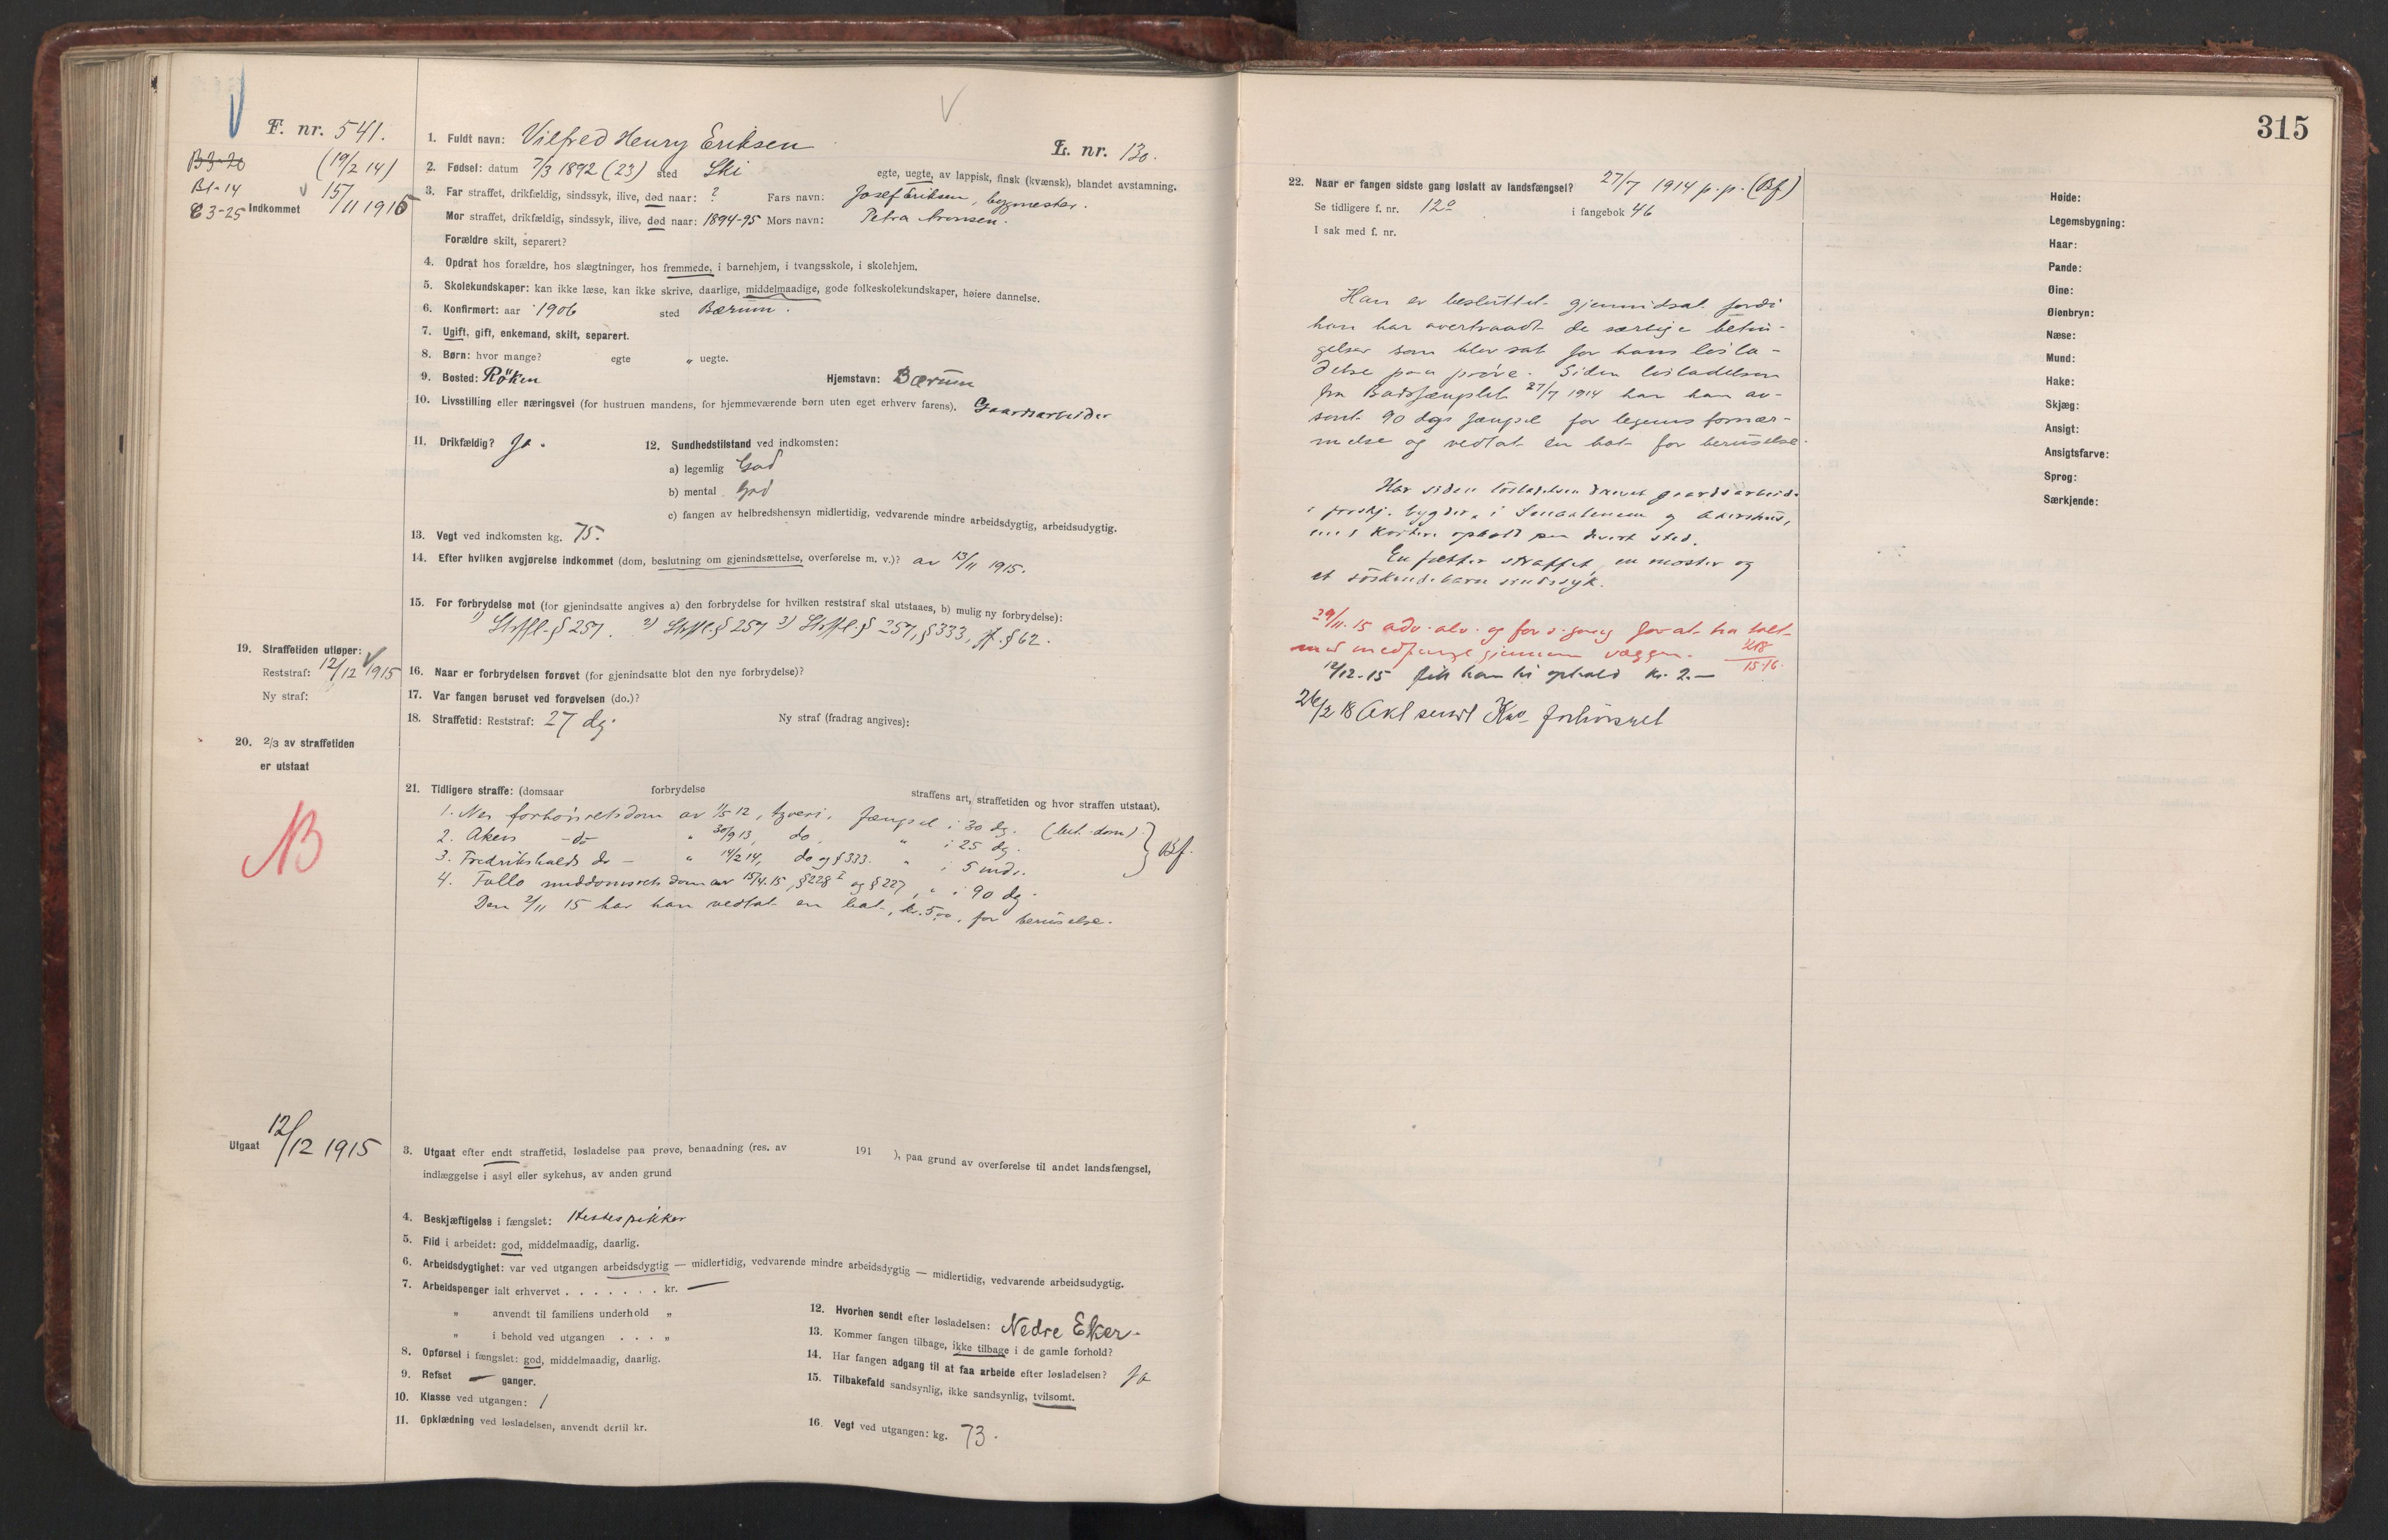 F. nr. 541.
B3-20
(19/2 14)
B1-14
15/
C3-25 Indkommet /11 1915
1. Fuldt navn: Vilfred Henry Eriksen
L. nr. 130.
2. Fødsel: datum 7/3 1892 (23) sted Ski
egte, uegte, av lappisk, finsk (kvænsk), blandet avstamning.
3. Far straffet, drikfældig, sindssyk, ilive, død naar: ? Fars navn: Josef Eriksen, bygmester.
Mor straffet, drikfældig, sindssyk, ilive, død naar: 1894-95 Mors navn: Petra Aronsen.
Forældre skilt, separert?
4. Opdrat hos forældre, hos slægtninger, hos fremmede, i barnehjem, i tvangsskole, i skolehjem.
5. Skolekundskaper: kan ikke læse, kan ikke skrive, daarlige, middelmaadige, gode folkeskolekundskaper, høiere dannelse.
6. Konfirmert: aar 1906 sted Bærum.
7. Ugift, gift, enkemand, skilt, separert.
8. Børn: hvor mange? egte „ uegte.
9. Bosted: Röken Hjemstavn: Bærum
10. Livsstilling eller næringsvei (for hustruen mandens, for hjemmeværende børn uten eget erhverv farens). Gaardsarbeider
11. Drikfældig? Ja.
12. Sundhedstilstand ved indkomsten:
a) legemlig God
b) mental God
c) fangen av helbredshensyn midlertidig, vedvarende mindre arbeidsdygtig, arbeidsudygtig.
13. Vegt ved indkomsten kg. 75.
14. Efter hvilken avgjørelse indkommet (dom, beslutning om gjenindsættelse, overførelse m. v.)? av 13/11 1915.
15. For forbrydelse mot (for gjenindsatte angives a) den forbrydelse for hvilken reststraf skal utstaaes, b) mulig ny forbrydelse):
1) Strffl. § 257. 2) Strffl. § 257 3) Strffl. § 257, § 333, jf. § 62.
19. Straffetiden utløper:
Reststraf: 12/12 1915
Ny straf:
16. Naar er forbrydelsen forøvet (for gjenindsatte blot den nye forbrydelse)?
17. Var fangen beruset ved forøvelsen (do.)?
18. Straffetid: Reststraf: 27 dg. Ny straf (fradrag angives):
20. 2/3 av straffetiden
er utstaat
NB
21. Tidligere straffe: (domsaar forbrydelse straffens art, straffetiden og hvor straffen utstaat).
1. Nes forhörsretsdom av 1/5 12, tyveri, fængsel i 30 dg. (bet. dom)
2. Akers -do- " 30/9 13, do, " i 25 dg.
3. Fredrikshalds do - " 14/2 14, do og § 333. " i 5 mdr. } Bf.
4. Follo meddomsrets dom av 15/4 15, § 228 I og § 227, " i 90 dg.
Den 2/11 15 har han vedtat en bot, kr. 5,00, for beruselse.
Utgaat 12/12 1915
3. Utgaat efter endt straffetid, løsladelse paa prøve, benaadning (res. av 191 ), paa grund av overførelse til andet landsfængsel,
indlæggelse i asyl eller sykehus, av anden grund
4. Beskjæftigelse i fængslet:
5. Flid i arbeidet: god, middelmaadig, daarlig.
6. Arbeidsdygtighet: var ved utgangen arbeidsdygtig — midlertidig, vedvarende mindre arbeidsdygtig — midlertidig, vedvarende arbeidsudygtig.
7. Arbeidspenger ialt erhvervet . . . . . . . kr. —
„ anvendt til familiens underhold „
„ i behold ved utgangen . . . „
8. Opførsel i fængslet: god, middelmaadig, daarlig.
9. Refset — ganger.
10. Klasse ved utgangen: 1
11. Opklædning ved løsladelsen, anvendt dertil kr.
12. Hvorhen sendt efter løsladelsen: Nedre Eker.
13. Kommer fangen tilbage, ikke tilbage i de gamle forhold?
14. Har fangen adgang til at faa arbeide efter løsladelsen? Ja
15. Tilbakefald sandsynlig, ikke sandsynlig, tvilsomt.
16. Vegt ved utgangen: kg. 73.
315
22. Naar er fangen sidste gang løslatt av landsfængsel? 27/7 1914 p.p. (Bf)
Se tidligere f. nr. 120 i fangebok 46
I sak med f. nr.
Han er besluttet gjenindsat fordi
han har overtraadt de særlige betin-
gelser som blev sat for hans løsla-
delse paa prøve. Siden løsladelsen
fra Bodsfængslet 27/7 1914 har han av-
sonet 90 dgs fængsel for legemsfornær-
melse og vedtat en bot for beruselse.
Har siden löslatelsen drevet gaardsarbeide
i forskj. bygder, i Smaalenene og Akershus,
med kortere ophold paa hvert sted.
En fætter straffet, en moster og
et söskendebarn sindssyk.
29/11. 15 adv. alv. og for s. gang for at ha talt
med medfange gjennem væggen. 218
15-16.
12/12-15 fik han til ophold kr. 2.—
26/2 18 Akt sendt forhörsret
Høide:
Legemsbygning:
Haar:
Pande:
Øine:
Øienbryn:
Næse:
Mund:
Hake:
Skjæg:
Ansigt:
Ansigtsfarve:
Sprog:
Særkjende: